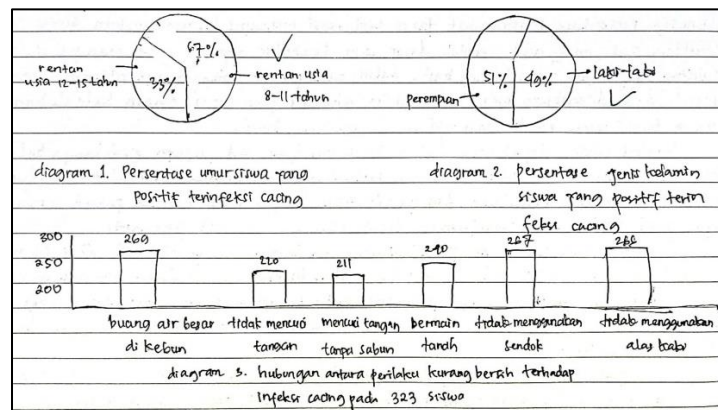 67%
rentan
usia 12-15 tahun
33%
rentan usia
8-11 tahun
51%
49%
laki-laki
perempuan
diagram 1. Persentase umur siswa yang
positif terinfeksi cacing
diagram 2. persentase jenis kelamin
siswa yang positif terin
feksi cacing
300
250
200
269
220
211
240
267
268
buang air besar
di kebun
tidak mencuci
tangan
mencuci tangan
tanpa sabun
bermain
tanah
tidak menggunakan
sendok
tidak menggunakan
alas kaki
diagram 3. hubungan antara perilaku kurang bersih terhadap
infeksi cacing pada 323 siswa